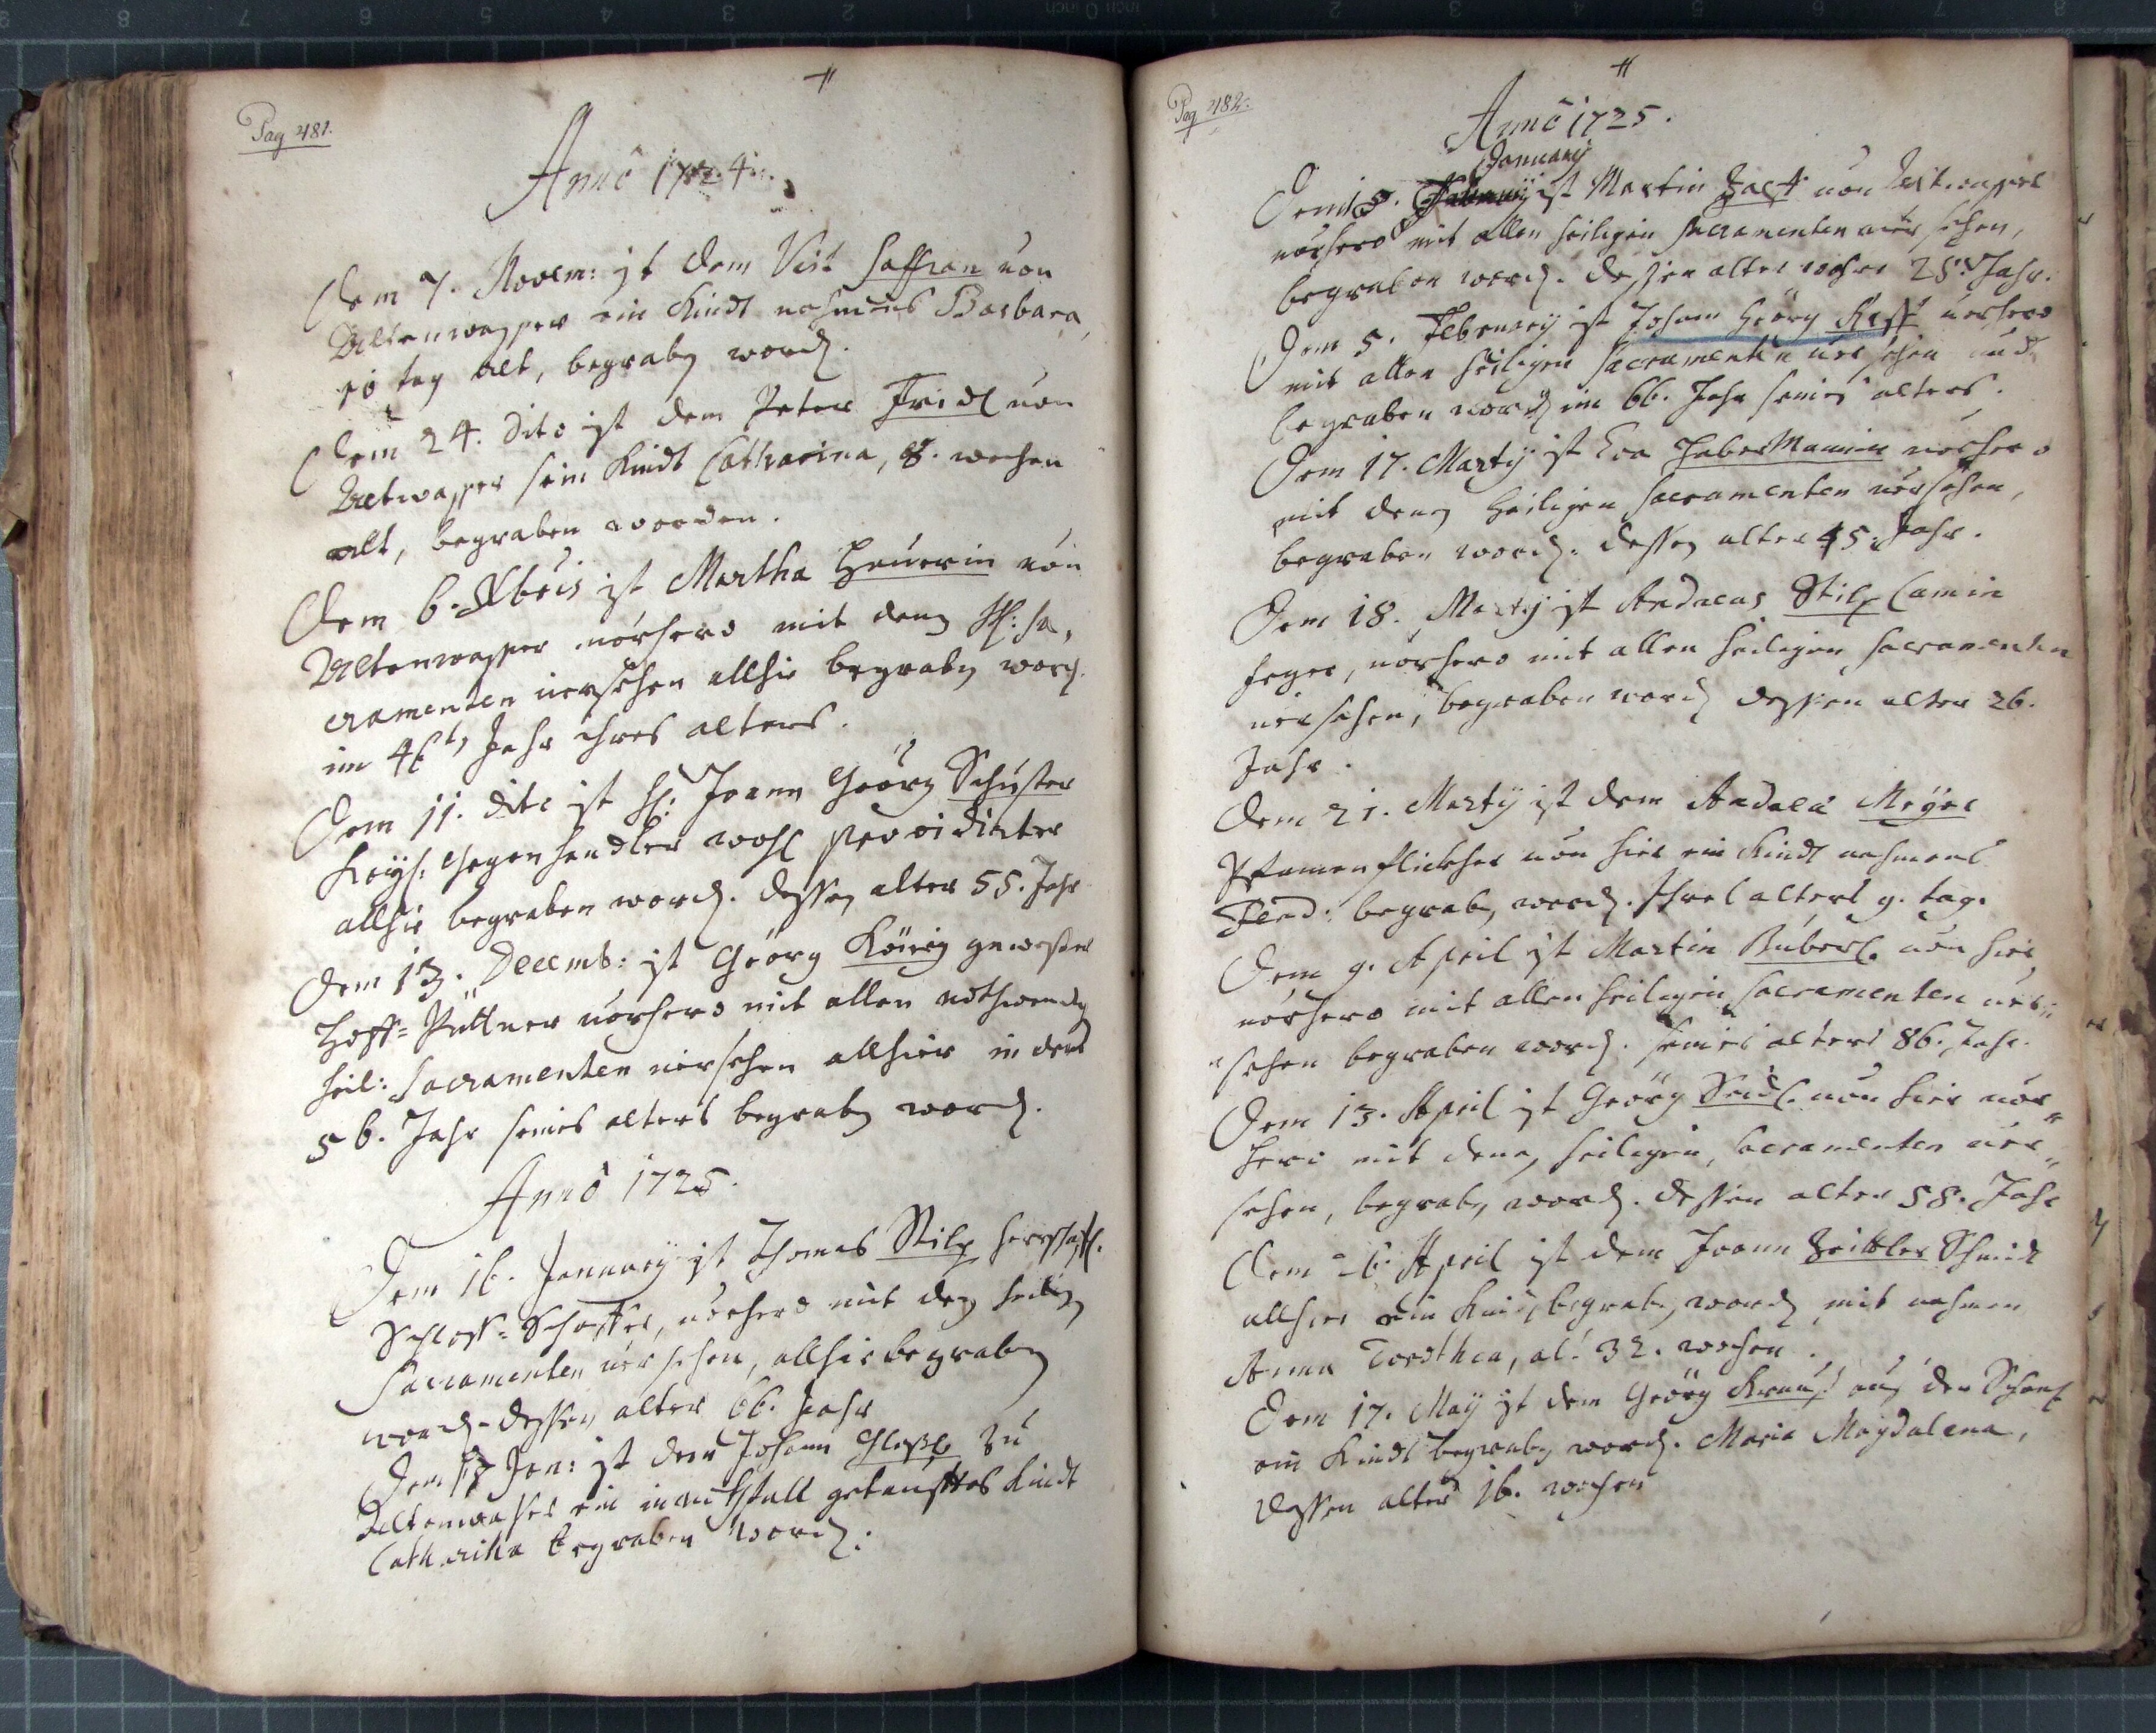 Pag 481.
Anno 1724.
Dem 7. Novem: ist dem Veit Saffran von
Altenwasser ein Kindt nahmens Barbara,
10 tag alt, begraben word.
Dem 24. dito ist dem Peter Fridl von
Altwasser sein Kindt Catharina, 8. wochen
alt, begraben worden.
Dem 6. Xbris ist Martha Heuerin von
Altenwasser vorhero mit denen Hl: Sa,
cramenten versehen allhie begraben word.
im 46t Jahr ihres alters.
Dem 11. dito ist H: Joann Geörg Schuster
Kayß: Gegenhandler wohl providirter
allhie begraben word. dessen alter 55. Jahr
Dem 13. Decemb: ist Geörg König gewester
Hoff=Püttner vorhero mit allen nothwendig
heil: Sacramenten versehen allhier in dem
56. Jahr seines alters begraben word.
Anno 1725.
Dem 16. January ist Thomas Stilp herrschafftl.
Schloss=Schaffer, vorhero mit den heilig
Sacramenten versehen, allhie begraben
word. dessen alter 66. Jahr
Dem 17 Jan: ist dem Johann zu
Altenwasser ein getaufftes Kindt
Catharina begraben word.
Pag 482.
Anno 1725.
January
Dem 15. ist Martin von Altwasser
vorhero mit allen heiligen Sacramenten versehen,
begraben word. dessen alter wahre 28. Jahr.
Dem 5. February ist Johann Geörg vorhero
mit allen heiligen Sacramenten versehen und
begraben word im 66. Jahr seines alters.
Dem 17. Marty ist Eva Habermannin vorhero
mit denen Heiligen Sacramenten versehen,
begraben word. dessen alter 45. Jahr.
Dem 18. Marty ist Andreas Stilp Camin
feger, vorhero mit allen heiligen Sacramenten
versehen, begraben word dessen alter 26.
Jahr.
Dem 21. Marty ist dem Andrea Meÿer
von hier ein Kindt nahmens
begraben word. Ihres alters 9. tag.
Dem 9. April ist Martin Buberl von hier
vorhero mit allen heiligen Sacramenten ver=
=sehen begraben word. seines alters 86. Jahr.
Dem 13. April ist Geörg Seidl von hier vor=
hero mit denen heiligen Sacramenten ver=
sehen, begraben word. dessen alter 58. Jahr
Dem April ist dem Joann Zeittler Schmidt
allhier ein Kindt begraben word mit nahmen
Anna Dorothea, alt 32. wochen.
Dem 17. May ist dem Geörg Krauß auf der
ein Kindt begraben word. Maria Magdalena,
dessen alter 16. wochen